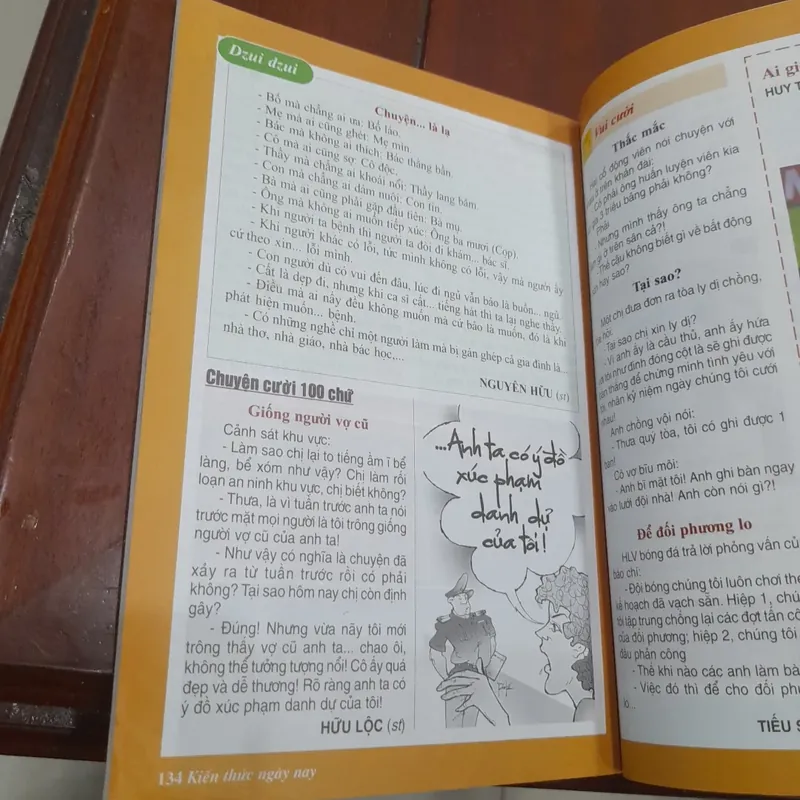 Dzui dzui
Chuyện... lá lạ
- Bố mà chẳng ai ưa: Bố láo.
- Mẹ mà ai cũng ghét: Mẹ mìn.
- Bác mà không ai thích: Bác thằng bần.
- Cô mà ai cũng sợ: Cô độc.
- Thầy mà chẳng ai khoái nổi: Thầy lang băm.
- Con mà chẳng ai dám nuôi: Con tin.
- Bà mà ai cũng phải gặp đầu tiên: Bà mụ.
- Ông mà không ai muốn tiếp xúc: Ông ba mươi (Cọp).
- Khi người ta bệnh thì người ta đòi đi khám... bác sĩ.
- Khi người khác có lỗi, tức mình không có lỗi, vậy mà người ấy
cứ theo xin... lỗi mình.
- Con người dù có vui đến đâu, lúc đi ngủ vẫn bảo là buồn... ngủ.
- Cất là dẹp đi, nhưng khi ca sĩ cất... tiếng hát thì ta lại nghe thấy.
- Điều mà ai nấy đều không muốn mà cứ bảo là muốn, đó là khi
phát hiện muốn... bệnh.
- Có những nghề chỉ một người làm mà bị gán ghép cả gia đình là...
nhà thơ, nhà giáo, nhà bác học,...
NGUYÊN HỮU (st)
Chuyện cười 100 chữ
Giống người vợ cũ
Cảnh sát khu vực:
- Làm sao chị lại to tiếng ầm ĩ bể
làng, bể xóm như vậy? Chị làm rối
loạn an ninh khu vực, chị biết không?
- Thưa, là vì tuần trước anh ta nói
trước mặt mọi người là tôi trông giống
người vợ cũ của anh ta!
- Như vậy có nghĩa là chuyện đã
xảy ra từ tuần trước rồi có phải
không? Tại sao hôm nay chị còn định
gây?
- Đúng! Nhưng vừa nãy tôi mới
trông thấy vợ cũ anh ta... chao ôi,
không thể tưởng tượng nổi! Cô ấy quá
đẹp và dễ thương! Rõ ràng anh ta có
ý đồ xúc phạm danh dự của tôi!
HỮU LỘC (st)
...Anh ta có ý đồ
xúc phạm
danh dự
của tôi!
134 Kiến thức ngày nay
Vui cười
Thắc mắc
cổ động viên nói chuyện với
trên khán đài:
Có phải ông huấn luyện viên kia
giá 3 triệu bảng phải không?
Phải.
Nhưng mình thấy ông ta chẳng
gì ở trên sân cả?!
Thế cậu không biết gì về bất động
hay sao?
Tại sao?
Một chị đưa đơn ra tòa ly dị chồng,
hỏi:
Tại sao chị xin ly dị?
- Vì anh ấy là cầu thủ, anh ấy hứa
với tôi như đinh đóng cột là sẽ ghi được
bàn thắng để chứng minh tình yêu với
tôi, nhân kỷ niệm ngày chúng tôi cưới
nhau!
Anh chồng vội nói:
- Thưa quý tòa, tôi có ghi được 1
bàn!
Cô vợ bĩu môi:
- Anh bị mật tôi! Anh ghi bàn ngay
vào lưới đội nhà! Anh còn nói gì?!
Để đối phương lo
HLV bóng đá trả lời phỏng vấn của
báo chí:
- Đội bóng chúng tôi luôn chơi the
kế hoạch đã vạch sẵn. Hiệp 1, chú
tôi tập trung chống lại các đợt tấn cô
của đối phương; hiệp 2, chúng tôi
đầu phản công
- Thế khi nào các anh làm bà
- Việc đó thì để cho đối phư
lo...
TIẾU S
Ai gi
HUY T